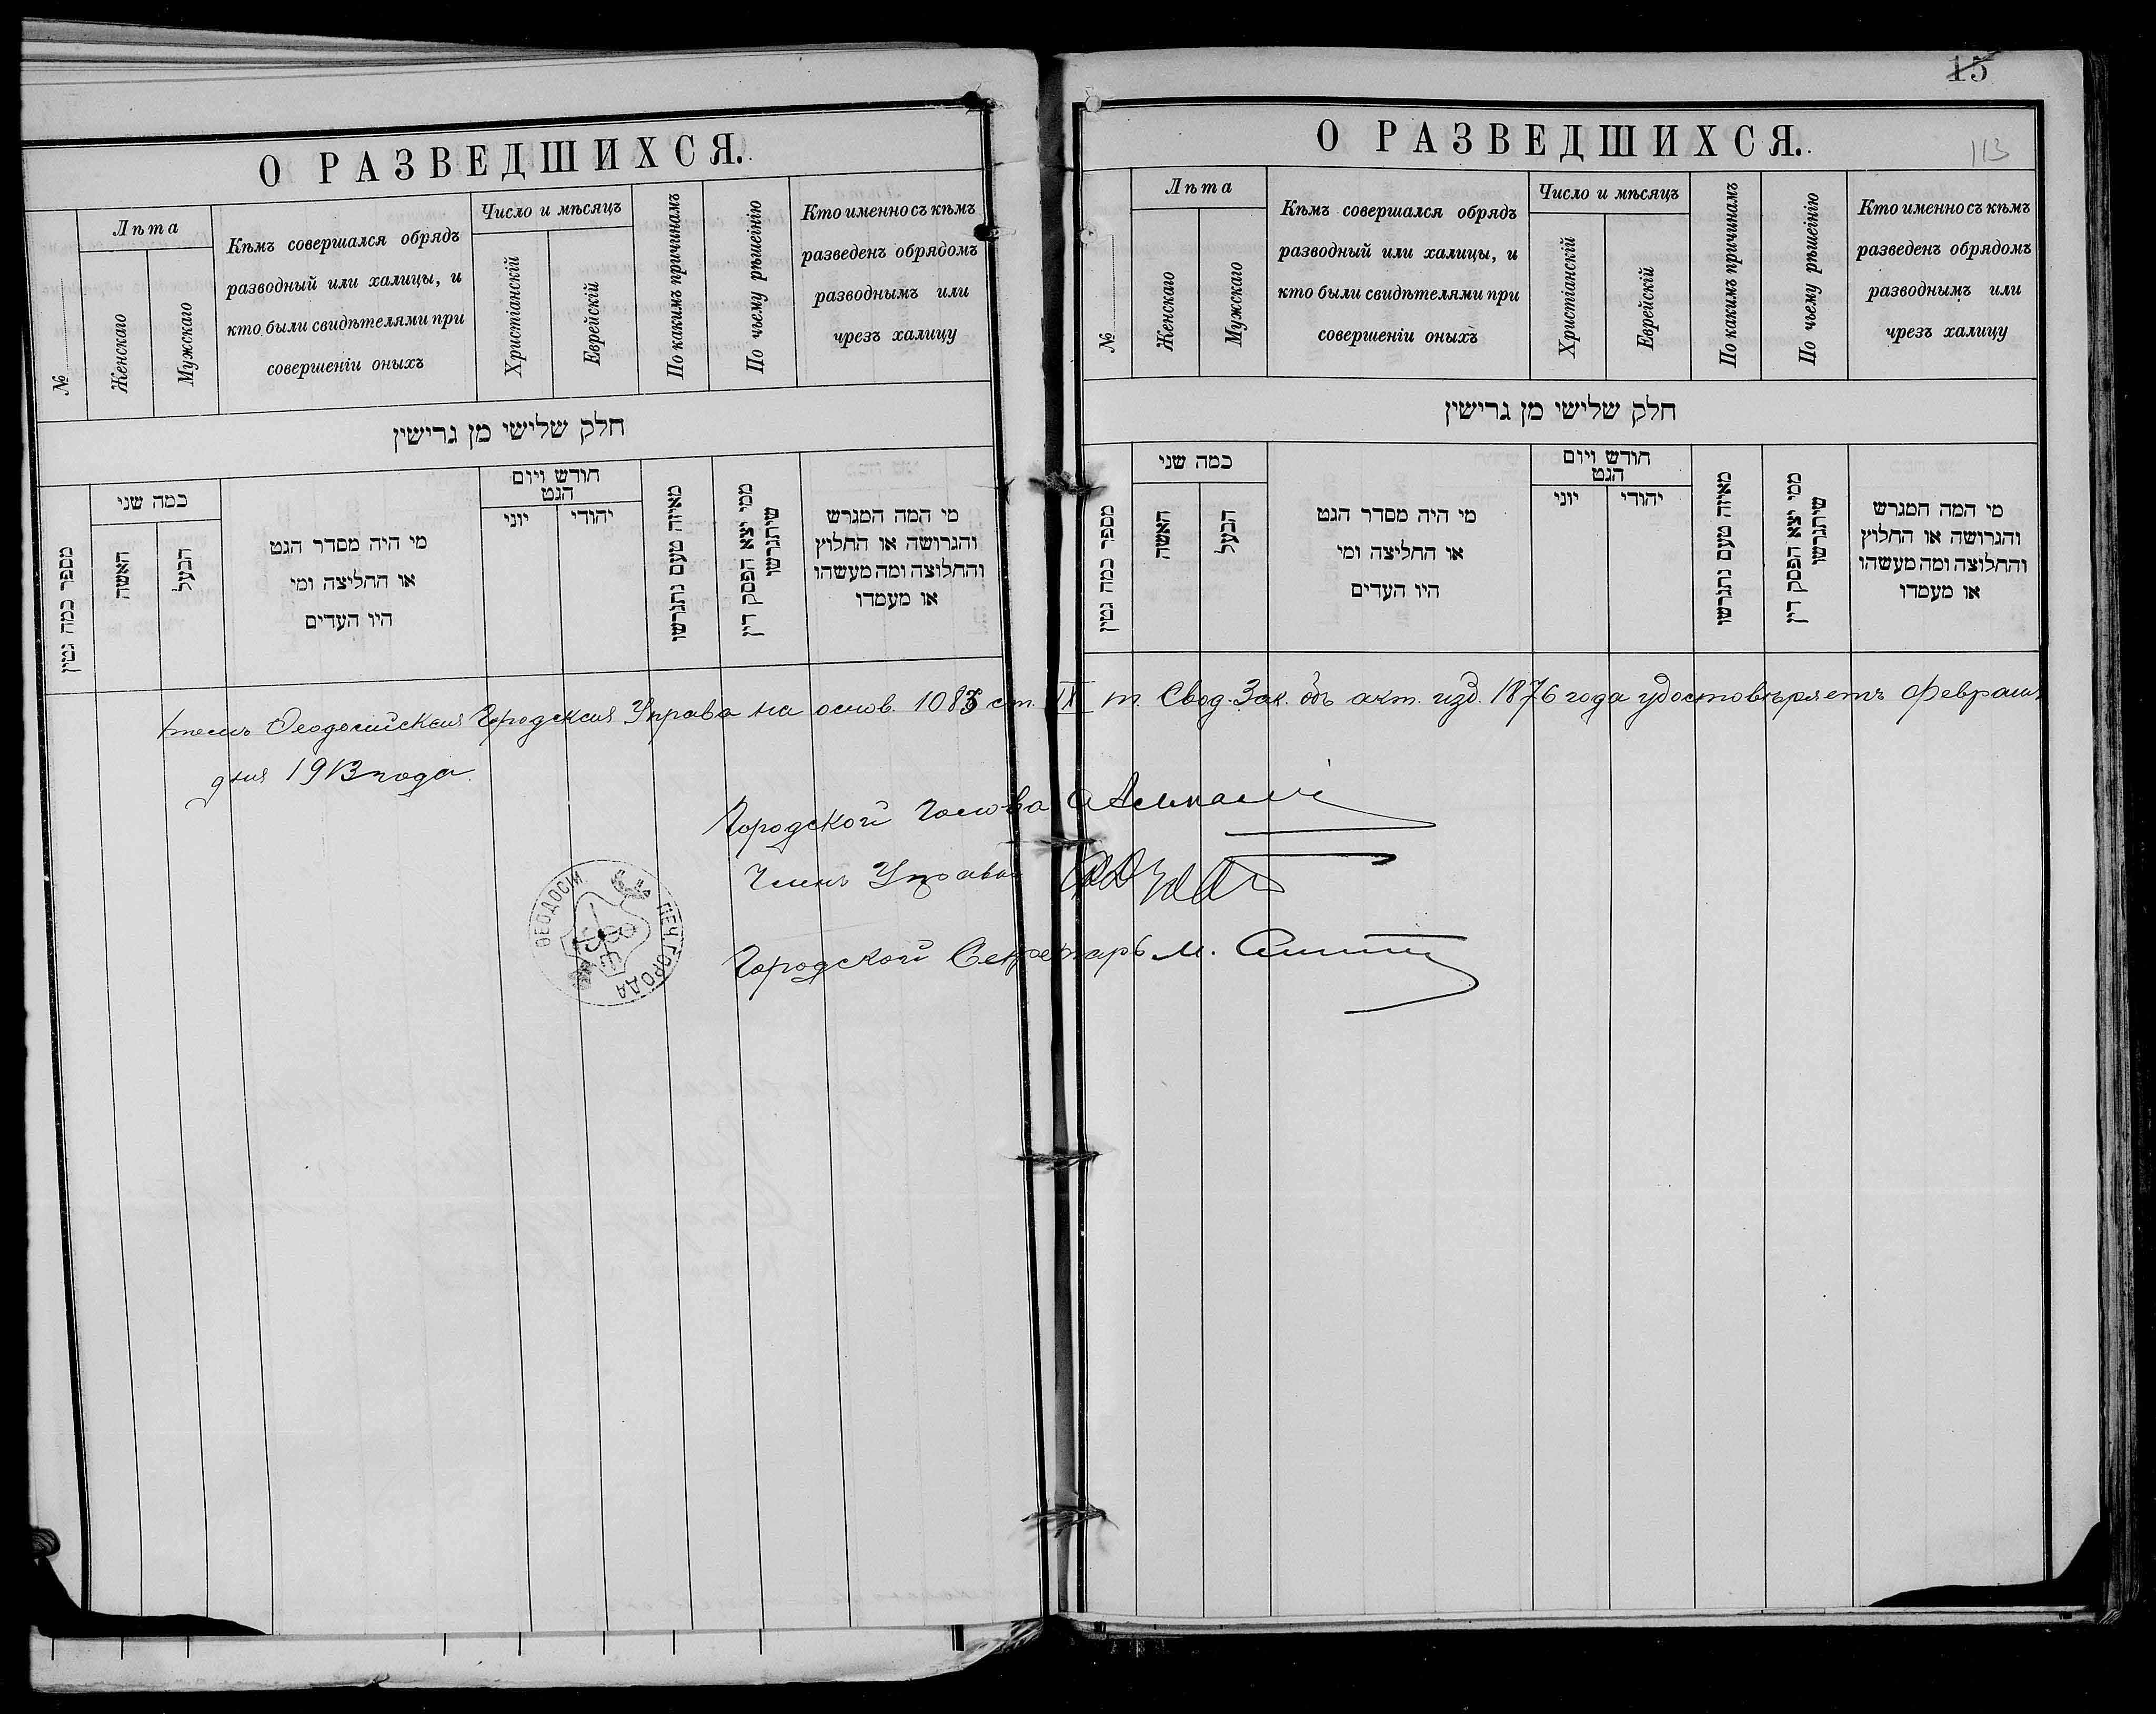 15
113
О РАЗВЕДШИХСЯ.
№
Лѣта
Женскаго
Мужскаго
Кѣмъ совершался обрядъ
разводный или халицы, и
кто были свидѣтелями при
совершеніи оныхъ
Число и мѣсяцъ
Христіанскій
Еврейскій
По какимъ причинамъ
По чьему рѣшеінію
Кто именно съ кѣмъ
разведенъ обрядомъ
разводнымъ или
чрезъ халицу
חלק שלישי מן גרישין
מספר כמה גטין
כמה שני
האשה
הבעל
מי היה מסדר הגט
או החליצה ומי
היו העדים
חודש ויום
הגט
יוני
יהודי
מאיזה טעם נתגרשו
ממי יצא הפסק דין
שיתגרשו
מי המה המגרש
והגרושה או החלוץ
והחלוצה ומה מעשהו
או מעמדו
О РАЗВЕДШИХСЯ.
№
Лѣта
Женскаго
Мужскаго
Кѣмъ совершался обрядъ
разводный или халицы, и
кто были свидѣтелями при
совершеніи оныхъ
Число и мѣсяцъ
Христіанскій
Еврейскій
По какимъ причинамъ
По чьему рѣшеінію
Кто именно съ кѣмъ
разведенъ обрядомъ
разводнымъ или
чрезъ халицу
חלק שלישי מן גרישין
מספר כמה גטין
כמה שני
האשה
הבעל
מי היה מסדר הגט
או החליצה ומי
היו העדים
חודש ויום
הגט
יוני
יהודי
מאיזה טעם נתגרשו
ממי יצא הפסק דין
שיתגרשו
מי המה המגרש
והגרושה או החלוץ
והחלוצה ומה מעשהו
או מעמדו
Ѳеодосійская Городская Управа на основ. 1083 ст. IX т. Свод. Зак. объ акт. изд. 1876 года удостовѣряетъ Февраля
дня 1913 года.
Городской Голова
Членъ Управы
Городской Секретарь М.
ПЕЧ. ГОРОДА ѲЕОДОСІИ